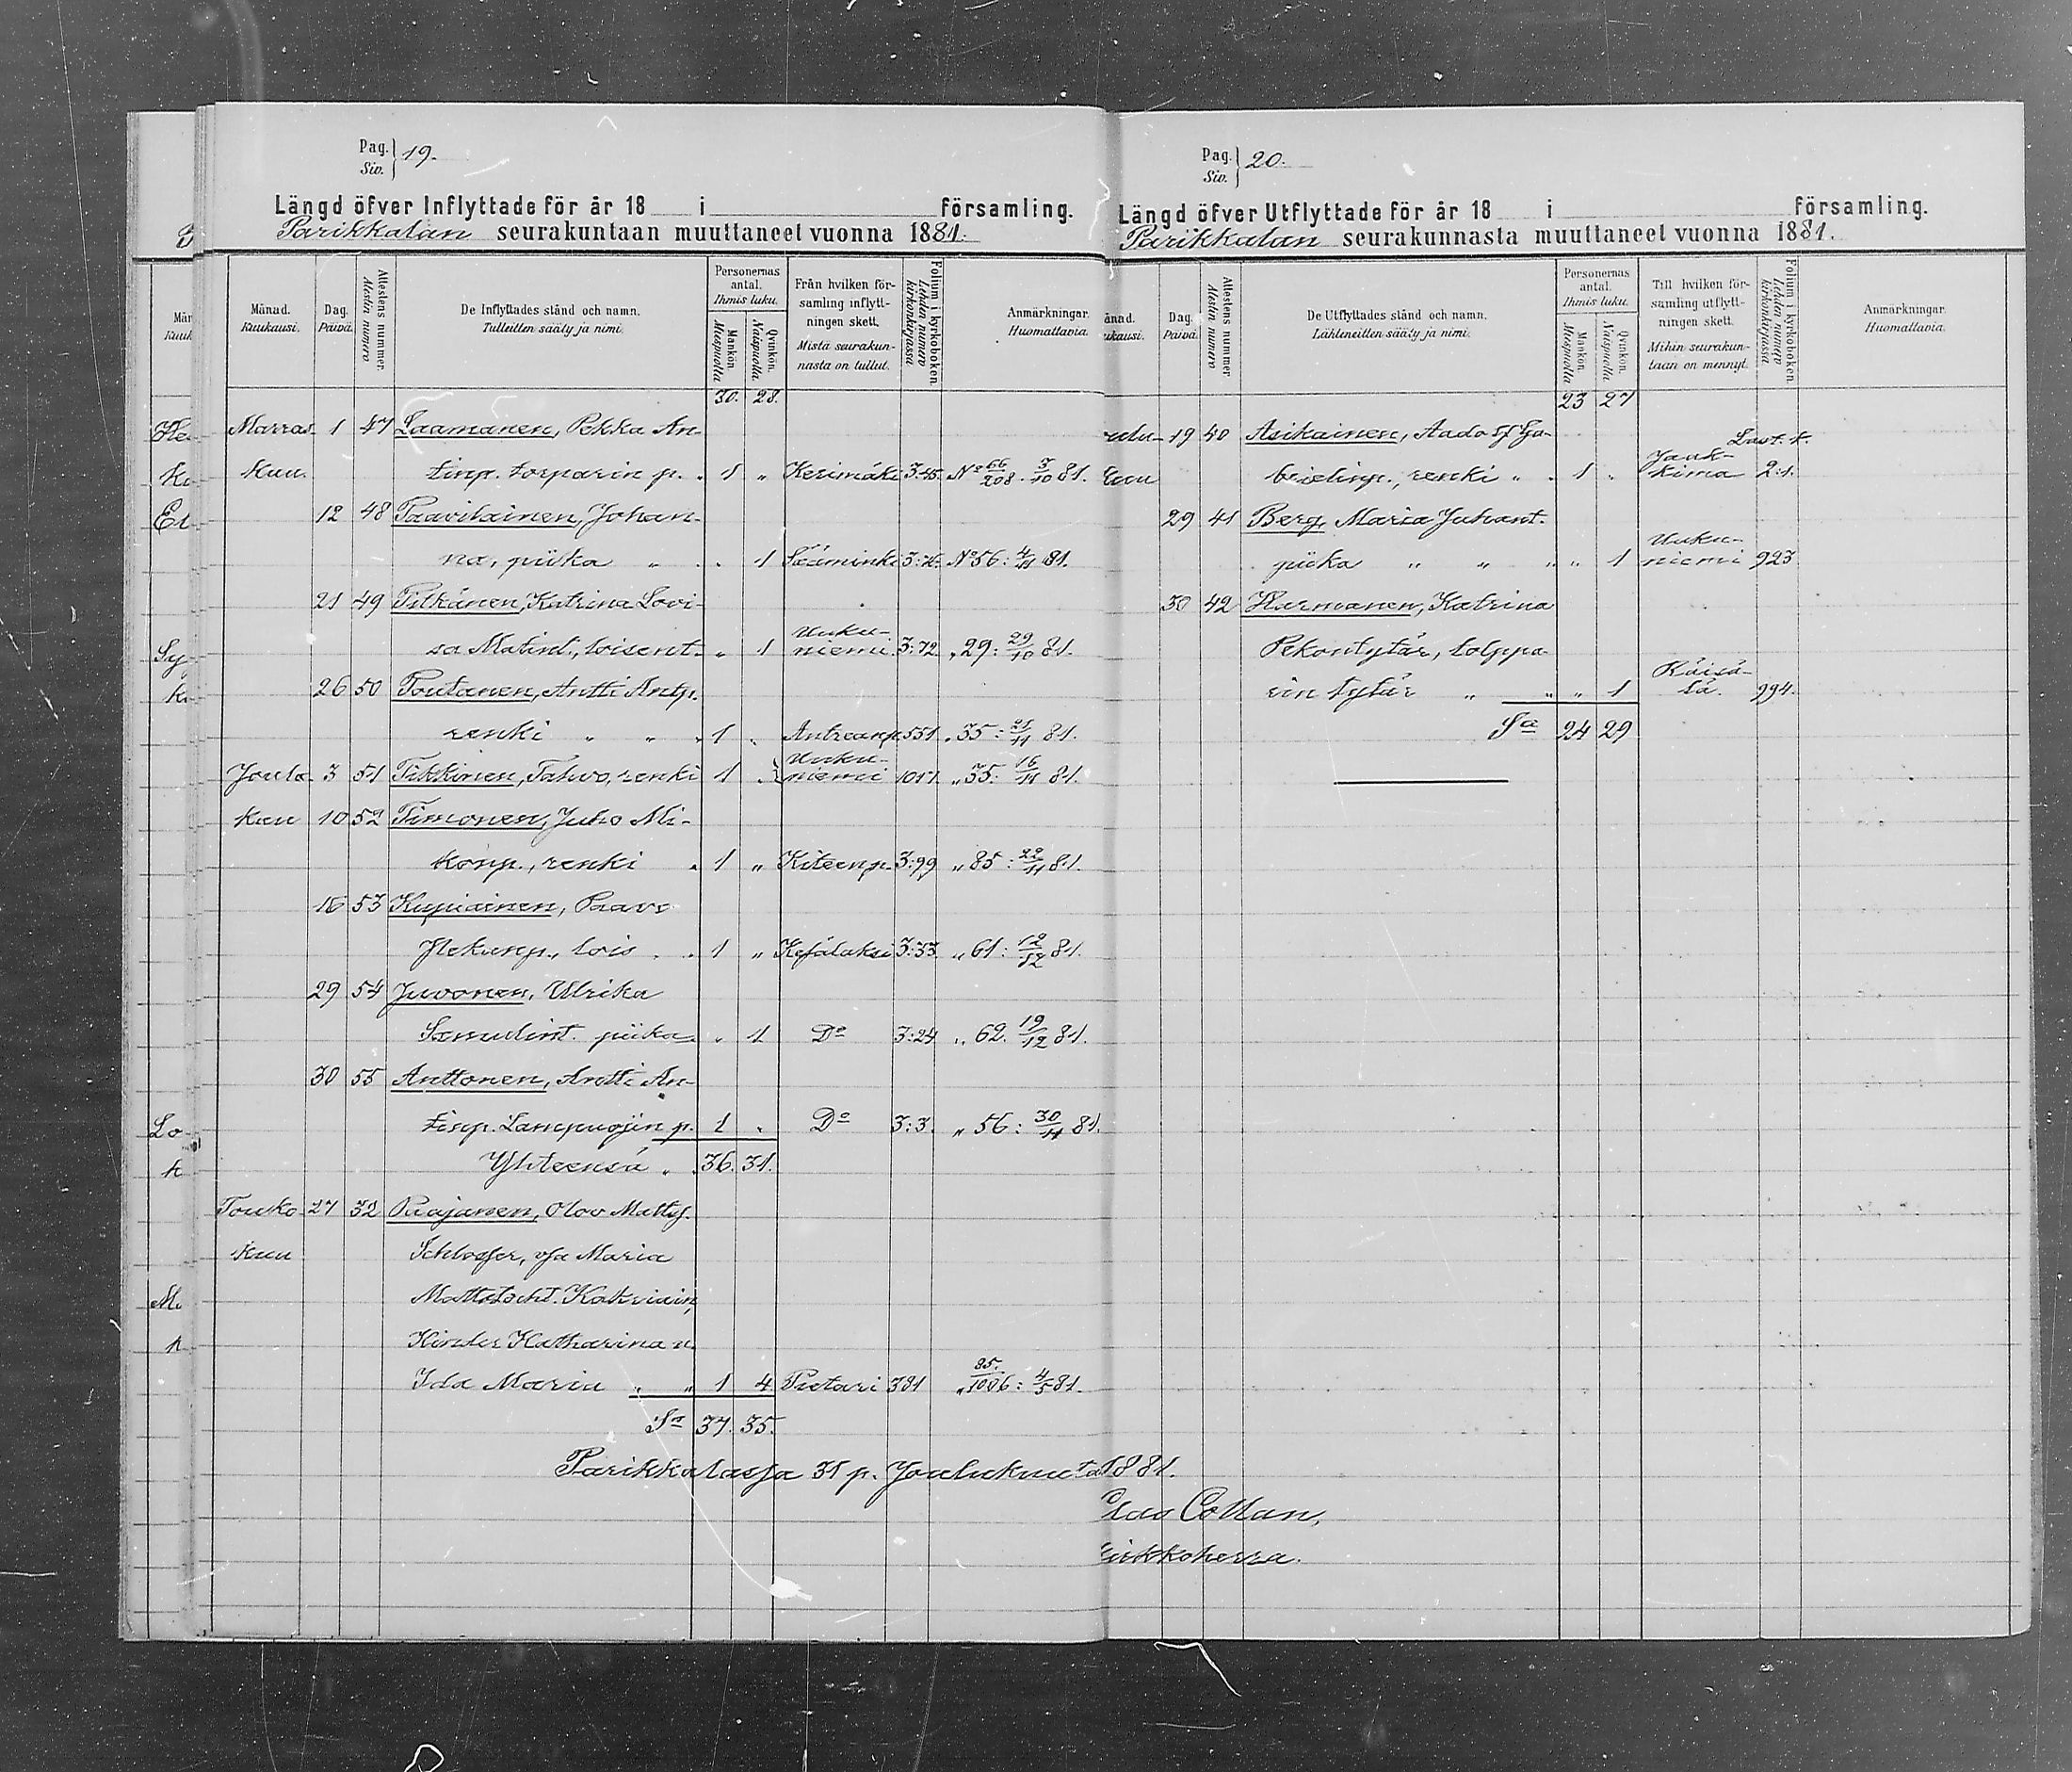 Pag. Siv. 19.
Längd öfver Inflyttade för år 18 i församling.
Parikkalan seurakuntaan muuttaneet vuonna 1881.
Månad. Kuukausi.
Dag. Päivä.
Attestens nummer. Atestin numero
De Inflyttades stånd och namn. Tulleitten sääty ja nimi.
Personernas antal. Ihmis luku.
Mankön. Miespuolia
Qvinkön. Naispuolia
Från hvilken för-
samling inflytt-
ningen skett.
Mistä seurakun-
nasta on tullut.
Folium i kyrkoboken. Lehden numero kirkonkirjassa
Anmärkningar. Huomattavia.
30. 28.
Marras- 1 47 Laamanen, Pekka An-
kuu. tinp. torparin p. 1 „ Kerimäki 3:45. No 66/208. 3/10 81.
12 48 Paavilainen, Johan-
na, piika „ 1 Sääminki No 56: 4/11 81.
21 49 Pitkänen, Katrina Lovi-
sa Matint., loisent. „ 1 Uuku-
niemi. 3:72. „ 29: 29/10 81.
26 50 Poutanen, Antti Antp.
renki „ „ 1 „ Antreanp. 551. „ 35: 21/11 81.
Joulu- 3 51 Tikkinen, Tahvo, renki 1 „ Uuku-
niemi 1017. „ 35: 16/11 81.
kuu 10 52 Timonen, Juho Mi-
konp., renki 1 „ Kiteenp. 3:99 „ 85: 22/11 81.
16 53 Kupiainen, Paavo
Heikinp., lois 1 „ Kesälaksi 3:33. „ 61: 12/12 81.
29 54 Juvonen, Ulrika
Samulint. piika „ 1 Do 3:24 „ 62. 19/12 81.
30 55 Anttonen, Antti An-
tinp. Lampuojin p. 1 „ Do 3:3. „ 56: 30/11 81.
Yhteensä „ 36. 31.
Touko- 27 32 Paajanen, Olov Matts.
kuu Schlosser, v/a Maria
Mattstocht. Kokriain,
Kinder Katharina u.
Ida Maria „ „ 1 4 Pietari 381 „ 85./1006: 4/5 81.
Sa 37. 35.
Parikkalassa 31 p. Joulukuuta 1881.
Collan,
kirkkoherra.
Pag. Siv. 20.
Längd öfver Utflyttade för år 18 i församling.
Parikkalan seurakunnasta muuttaneet vuonna 1881.
ånad. ukausi.
Dag. Päivä.
Attestens nummer. Atestin numero
De Utflyttades stånd och namn. Lähteneitten sääty ja nimi.
Personernas antal. Ihmis luku.
Mankön. Miespuolia
Qvinkön. Naispuolia
Till hvilken för-
samling utflytt-
ningen skett.
Mihin seurakun-
taan on mennyt.
Folium i kyrkoboken. Lehden numero kirkonkirjassa
Anmärkningar. Huomattavia.
23 27
oulu- 19 40 Asikainen, Aadolf Ga-
Last. k.
kuu brielinp., renki „ 1 „ Jaak-
kima 2:1.
29 41 Berg, Maria Juhant.
piika „ „ „ „ 1 Uuku-
niemi 923
30 42 Harmanen, Katrina
Pekontytär, tolppa-
rin tytär „ „ „ 1 Räisä-
lä. 994.
Sa 24 29